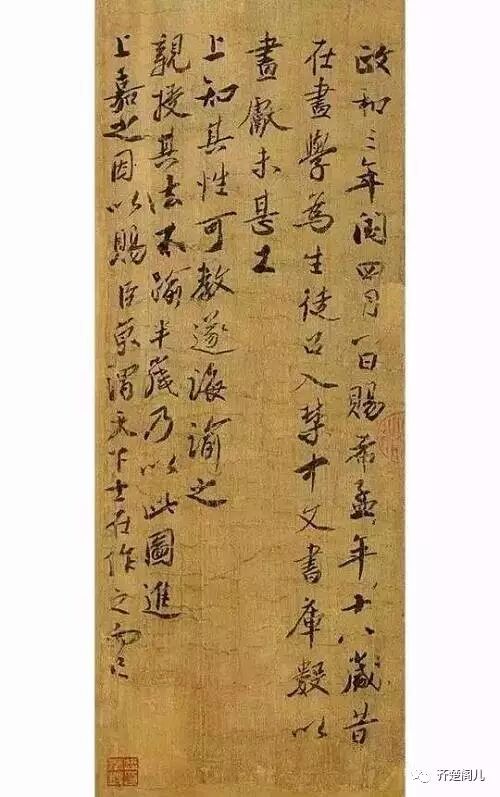 政和三年閏四月一日賜希孟年十八歲昔
在畫學爲生徒召入禁中文書庫數以
畫獻未甚工
上知其性可教遂誨諭之
親授其法不踰半歲乃以此圖進
上嘉之因以賜臣京謂天下士在作之而已
齐楚阁儿